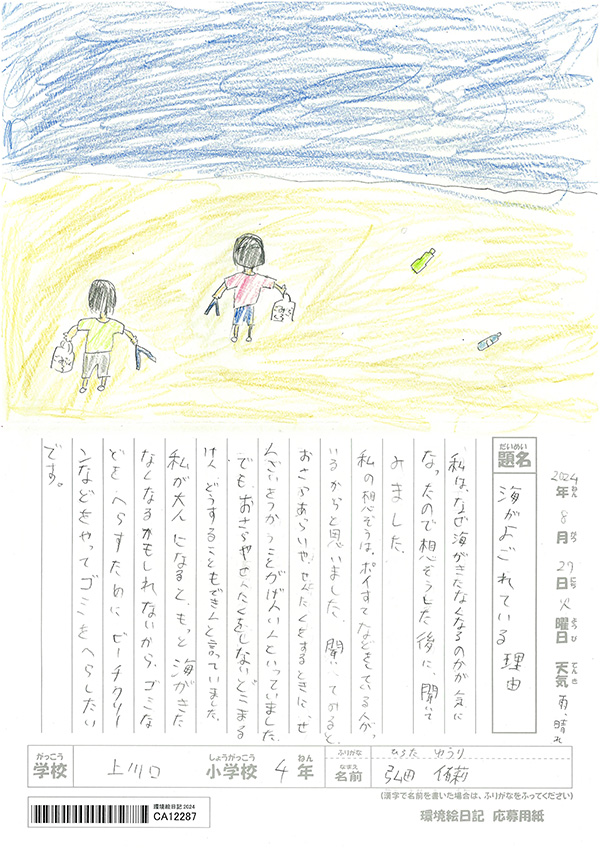 2024年 8月 27日 火曜日 天気 雨、晴れ
ねん がつ にち ようび てんき
だいめい
題名
海がよごれている理由
私は、なぜ海がきたなくなるのかが気に
なったので想ぞうした後に、聞いて
みました。
私の想ぞうは、ポイすてなどをしている人が
いるからと思いました。聞いてみると、
おさらあらいや、せんたくをするときに、せ
んざいをつかうことがげんいんといっていました。
でも、おさらやせんたくをしないとこまる
けん どうすることもできんと言っていました。
私が大人になると、もっと海がきた
なくなるかもしれないから、ゴミな
どをへらすためにビーチクリー
ンなどをやってゴミをへらしたい
です。
がっこう
学校
上川口
しょうがっこう
小学校
4
ねん
年
ふりがな
ひろた ゆうり
なまえ
名前
弘田
(漢字で名前を書いた場合は、ふりがなをふってください)
環境絵日記 2024
CA12287
環境絵日記 応募用紙